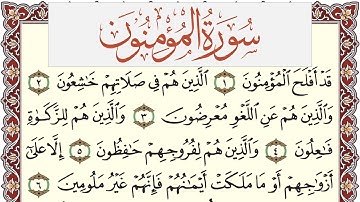 سُورَةُ المُؤْمِنُون
قَدْ أَفْلَحَ الْمُؤْمِنُونَ ١ الَّذِينَ هُمْ فِي صَلَاتِهِمْ خَاشِعُونَ ٢
وَالَّذِينَ هُمْ عَنِ اللَّغْوِ مُعْرِضُونَ ٣ وَالَّذِينَ هُمْ لِلزَّكَوٰةِ
فَاعِلُونَ ٤ وَالَّذِينَ هُمْ لِفُرُوجِهِمْ حَافِظُونَ ٥ إِلَّا عَلَىٰ
أَزْوَاجِهِمْ أَوْ مَا مَلَكَتْ أَيْمَٰنُهُمْ فَإِنَّهُمْ غَيْرُ مَلُومِينَ ٦